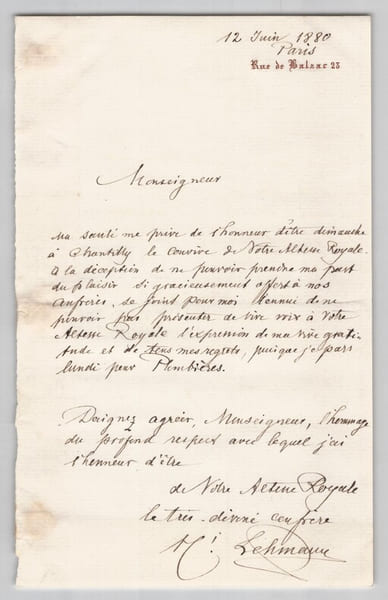 12 Juin 1880
Paris
Rue de Balzac 23
Monseigneur
Ma santé me prive de l'honneur d'être dimanche
à Chantilly le convive de Votre Altesse Royale.
à la déception de ne pouvoir prendre ma part
du plaisir si gracieusement offert à nos
confrères, se joint pour moi l'ennui de ne
pouvoir pas présenter de vive voix à Votre
Altesse Royale l'expression de ma vive grati-
tude et de tous mes regrets, puisque je pars
lundi pour Plombières.
Daignez agréer, Monseigneur, l'hommage
du profond respect avec lequel j'ai
l'honneur d'être
de Votre Altesse Royale
le très-dévoué confrère
Lehmann